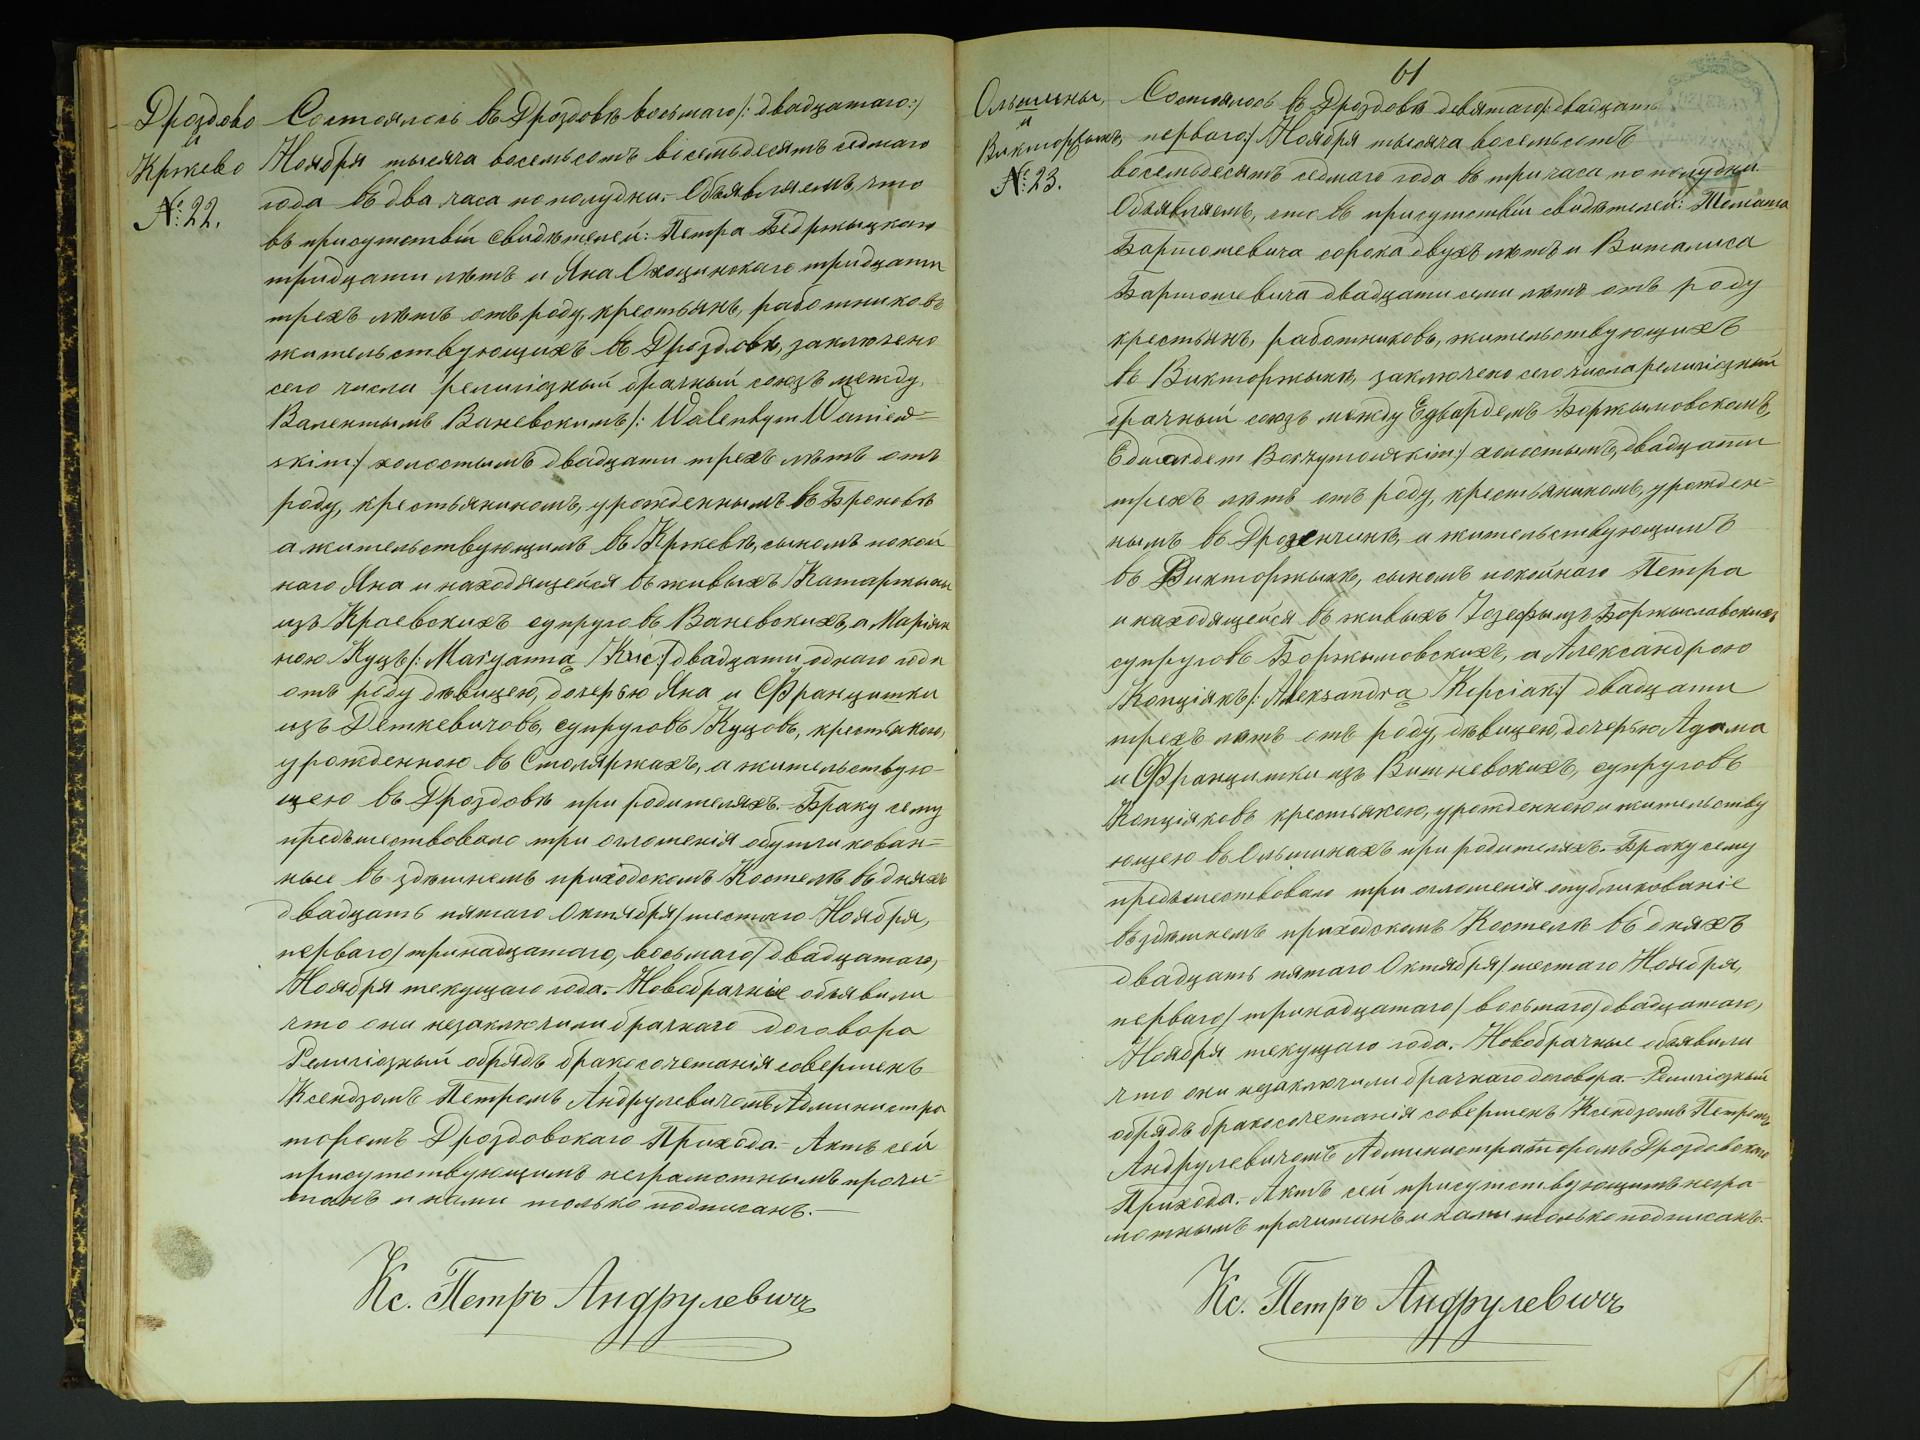 Дроздово
и
Кржево
№ 22.
Состоялось въ Дроздовѣ восьмаго /: двадцатаго :/
Ноября тысяча восемьсотъ восемьдесятъ седмаго
года въ два часа по полудни. – Объявляемъ, что
въ присутствіи свидѣтелей: Петра Бѣдржыцкаго
тридцати лѣтъ и Яна Охоцинскаго тридцати
трехъ лѣтъ отъ роду, крестьянъ, работниковъ
жительствующихъ въ Дроздовѣ, заключено
сего числа религіозный брачный союзъ между
Валентымъ Ваневскимъ /: Walentym Waniew=
skim :/ холостымъ двадцати трехъ лѣтъ отъ
роду, крестьяниномъ, урожденнымъ въ Броковѣ
а жительствующимъ въ Кржевѣ, сыномъ покой
наго Яна и находящейся въ живыхъ Катаржыны
изъ Краевскихъ супруговъ Ваневскихъ, а Маріян
ною Куцъ /: Maryanną Kuc :/ двадцати одного года
отъ роду дѣвицею, дочерью Яна и Францишки
изъ Деткевичовъ, супруговъ Куцовъ, крестьякою,
урожденною въ Столяржахъ, а жительствую-
щею въ Дроздовѣ при родителяхъ. – Браку сему
предъшествовало три оглошенія обупликован=
ные въ здѣшнемъ приходскомъ Костелѣ въ дняхъ
двадцать пятаго Октября / шестаго Ноября,
перваго / тринадцатаго, восьмаго / двадцатаго,
Ноября текущаго года. – Новобрачніе объявили
что они незаключили брачнаго договора
Религіозный обрядъ бракосочетанія совершенъ
Ксендзомъ Петромъ Андрулевичемъ Администра
торомъ Дроздовскаго Прихода. – Актъ сей
присутствующимъ неграмотнымъ прочи=
танъ и нами только подписанъ. –
Кс. Петръ Андрулевичъ
61
Ольшины,
и
Викторжыкъ
№ 23.
Состоялось въ Дроздовѣ девятаго /: двадцать
перваго :/ Ноября тысяча восемьсотъ
восемьдесятъ седмаго года въ три часа по полудни.
Объявляемъ, что въ присутствіи свидѣтелей: Томаша
Бартошевича сорока двухъ лѣтъ и Виталиса
Бартошевича двадцати семи лѣтъ отъ роду
крестьянъ, работниковъ, жительствующихъ
въ Викторжыкѣ, заключено сего числа религіозный
брачный союзъ между Едвардемъ Боржымовскомъ,
Edwardem Borzymowskim :/ холостымъ, двадцати
трехъ лѣтъ отъ роду, крестьяникомъ, урожден=
нымъ въ а жительствующимъ
въ Викторжыкѣ, сыномъ покойнаго Петра
и находящейся въ живыхъ Іозефы изъ Боржыславскихъ
супруговъ Боржымовскихъ, а Александрою
Копціякъ /: Aleksandrą Kopciak :/ двадцати
трехъ лѣтъ отъ роду, дѣвицею, дочерью Адама
и Францишки изъ Вишневскихъ, супруговъ
Копціяковъ крестьякою, урожденною и жительству
ющею въ Ольшинахъ при родителяхъ. – Браку сему
предъшествовало три оглошенія опубликованіе
въ здѣшнемъ приходскомъ Костелѣ въ дняхъ
двадцать пятаго Октября / шестаго Ноября,
перваго / тринадцатаго / восьмаго / двадцатаго,
Ноября текущаго года. – Новобрачные объявили
что они незаключили брачнаго договора. – Религіозный
обрядъ бракосочетанія совершенъ Ксендзомъ Петромъ
Андрулевичемъ Администраторомъ Дроздовскаго
Прихода. – Актъ сей присутствующимъ негра-
мотнымъ прочитанъ и нами только подписанъ. –
Кс. Петръ Андрулевичъ